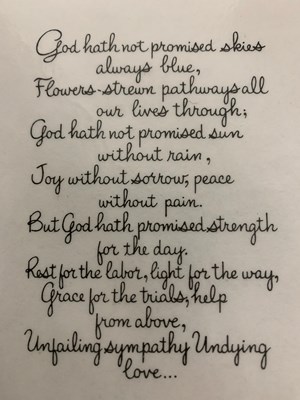 God hath not promised skies
always blue,
Flowers-strewn pathways all
our lives through;
God hath not promised sun
without rain,
Joy without sorrow, peace
without pain.
But God hath promised strength
for the day.
Rest for the labor, light for the way,
Grace for the trials, help
from above,
Unfailing sympathy Undying
love...